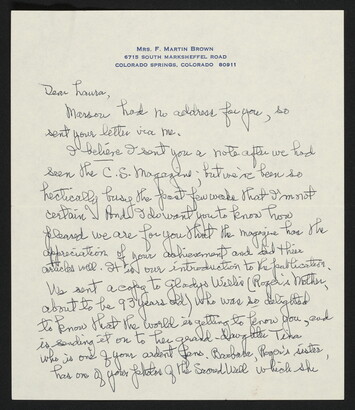 MRS. F. MARTIN BROWN
6715 SOUTH MARKSHEFFEL ROAD
COLORADO SPRINGS, COLORADO 80911
Dear Laura,
had no address for you, so
sent your letter via me.
I believe I sent you a note after we had
seen the C.S. Magazine; but we've been so
hectically busy the past few weeks that I'm not
certain. And I do want you to know how
pleased we are for you that the magazine has the
appreciation of your achievement and did their
article well. It is our introduction to the publication.
We sent a copy to Gladys (Roger's Mother,
about to be 93 years old) who was so delighted
to know that the world is getting to know you, and
is sending it on to her grand-daughter Tina
who is one of your ardent fans. Barbara, Roger's sister,
has one of your photos of the Sacred Well which she